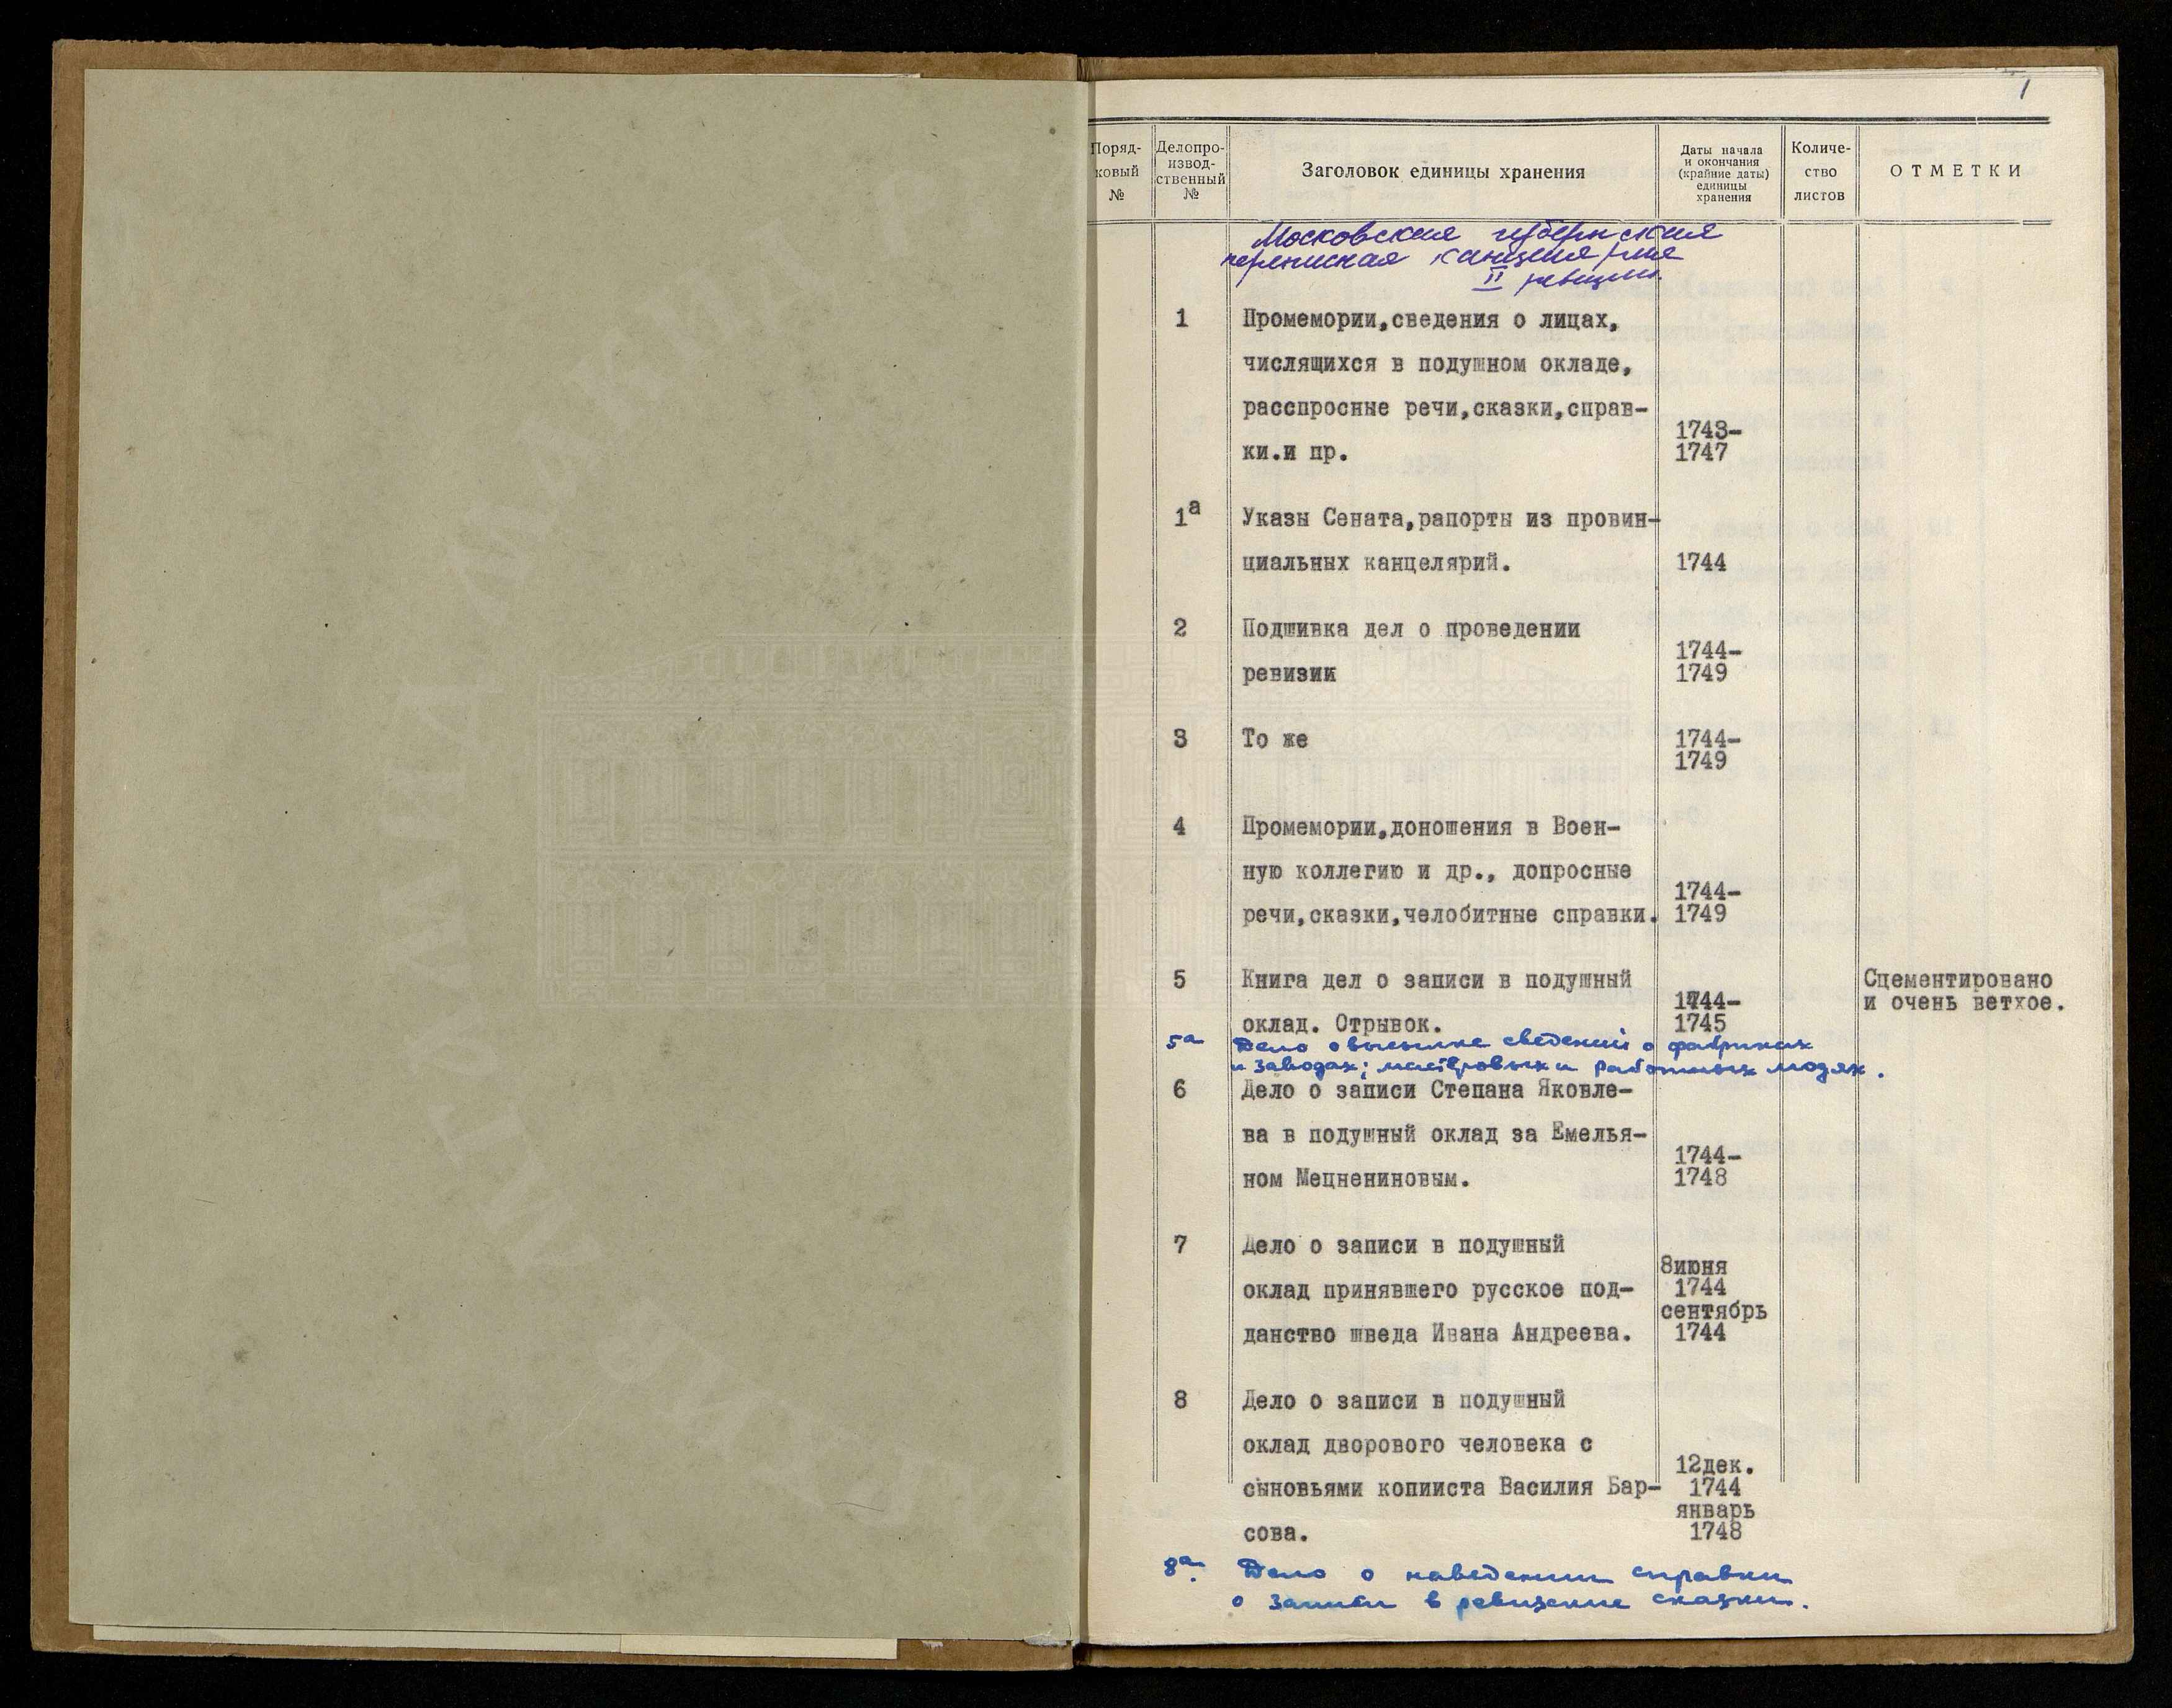 1
Поряд-
ковый
№
Делопро-
извод-
ственный
№
Заголовок единицы хранения
Даты начала
и окончания
(крайние даты)
единицы
хранения
Количе-
ство
листов
ОТМЕТКИ
Московская губернская
переписная канцелярия
II ревизии.
1 Промемории,сведения о лицах,
числящихся в подушном окладе,
расспросные речи,сказки,справ-
1743-
ки.и пр. 1747
1а Указы Сената,рапорты из провин-
циальных канцелярий. 1744
2 Подшивка дел о проведении
1744-
ревизии 1749
3 То же 1744-
1749
4 Промемории,доношения в Воен-
ную коллегию и др., допросные
1744-
речи,сказки,челобитные справки. 1749
5 Книга дел о записи в подушный Сцементировано
1744- и очень ветхое.
оклад. Отрывок. 1745
5а Дело о высылке сведений о фабриках
и заводах; мастеровых и работных людях.
6 Дело о записи Степана Яковле-
ва в подушный оклад за Емелья-
1744-
ном Мецнениновым. 1748
7 Дело о записи в подушный
8июня
оклад принявшего русское под- 1744
сентябрь
данство шведа Ивана Андреева. 1744
8 Дело о записи в подушный
оклад дворового человека с
12дек.
сыновьями копииста Василия Бар- 1744
январь
сова. 1748
8а. Дело о наведении справки
о записи в ревизские сказки.